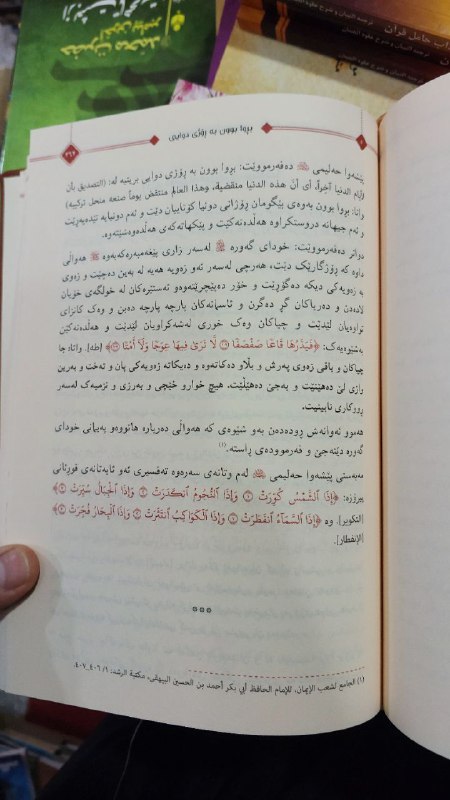 حضرت محمد
ترجمه التبیان و شرح حلوه الجنان
بڕوا بوون بە ڕۆژی دوایی
٣٦٣
پێشەوا حەلیمی دەفەرمووێت: بڕوا بوون بە ڕۆژی دوایی بریتیە لە: (التصديق بأن
لأيام الدنيا آخراً، أي أنّ هذه الدنيا منقضية، وهذا العالم منتقض يوماً صنعه منحل تركيبه)
واتا: بڕوا بوون بەوەی بێگومان ڕۆژانی دونیا کۆتاییان دێت و ئەم دونیایە تێدەپەڕێت
و ئەم جیهانە دروستکراوە هەڵدەتەکێت و پێکهاتەکەی هەڵدەوەشێتەوە.
دواتر دەفەرمووێت: خودای گەورە لەسەر زاری پێغەمبەرەکەیەوە ﷺ هەواڵی
داوە کە ڕۆژگارێک دێت، هەرچی لەسەر ئەو زەویە هەیە لە بەین دەچێت و زەوی
بە زەویەکی دیکە دەگۆڕێت و خۆر دەپێچرێتەوە و ئەستێرەکان لە خولگەی خۆیان
لادەدەن و دەریاکان گڕ دەگرن و ئاسمانەکان پارچە پارچە دەبن و وەک کانزای
تواوەیان لێدێت و چیاکان وەک خوری لەشەکراویان لێدێت و هەڵدەتەکێن
بەشێوەیەک: ﴿فَيَذَرُهَا قَاعًا صَفْصَفًا ۝ لَّا تَرَىٰ فِيهَا عِوَجًا وَلَآ أَمْتًا ۝﴾ [طه]. واتا: جا
چیاکان و باقی زەوی پەرش و بڵاو دەکاتەوە و دەیکاتە زەویەکی پان و تەخت و بەرین
وازی لێ دەهێنێت و بەجێ دەهێڵێت. هیچ خوارو خێچی و بەرزی و نزمیەک لەسەر
ڕووکاری نابینیت.
هەموو ئەوانەش ڕوودەدەن بەو شێوەی کە هەواڵی دەربارە هاتووەو بەیانی خودای
گەورە دێتەجێ و فەرموودەی ڕاستە.(١)
مەبەستی پێشەوا حەلیمی لەم وتانەی سەرەوە تەفسیری ئەو ئایەتانەی قورئانی
پیرۆزە: ﴿إِذَا ٱلشَّمْسُ كُوِّرَتْ ۝ وَإِذَا ٱلنُّجُومُ ٱنكَدَرَتْ ۝ وَإِذَا ٱلْجِبَالُ سُيِّرَتْ ۝﴾
[التكوير]. وە ﴿إِذَا ٱلسَّمَآءُ ٱنفَطَرَتْ ۝ وَإِذَا ٱلْكَوَاكِبُ ٱنتَثَرَتْ ۝ وَإِذَا ٱلْبِحَارُ فُجِّرَتْ ۝﴾
[الإنفطار].
***
(١) الجامع لشعب الإيمان، للإمام الحافظ أبي بكر أحمد بن الحسين البيهقي، مكتبة الرشد: ١/ ٤٠٦_٤٠٧.